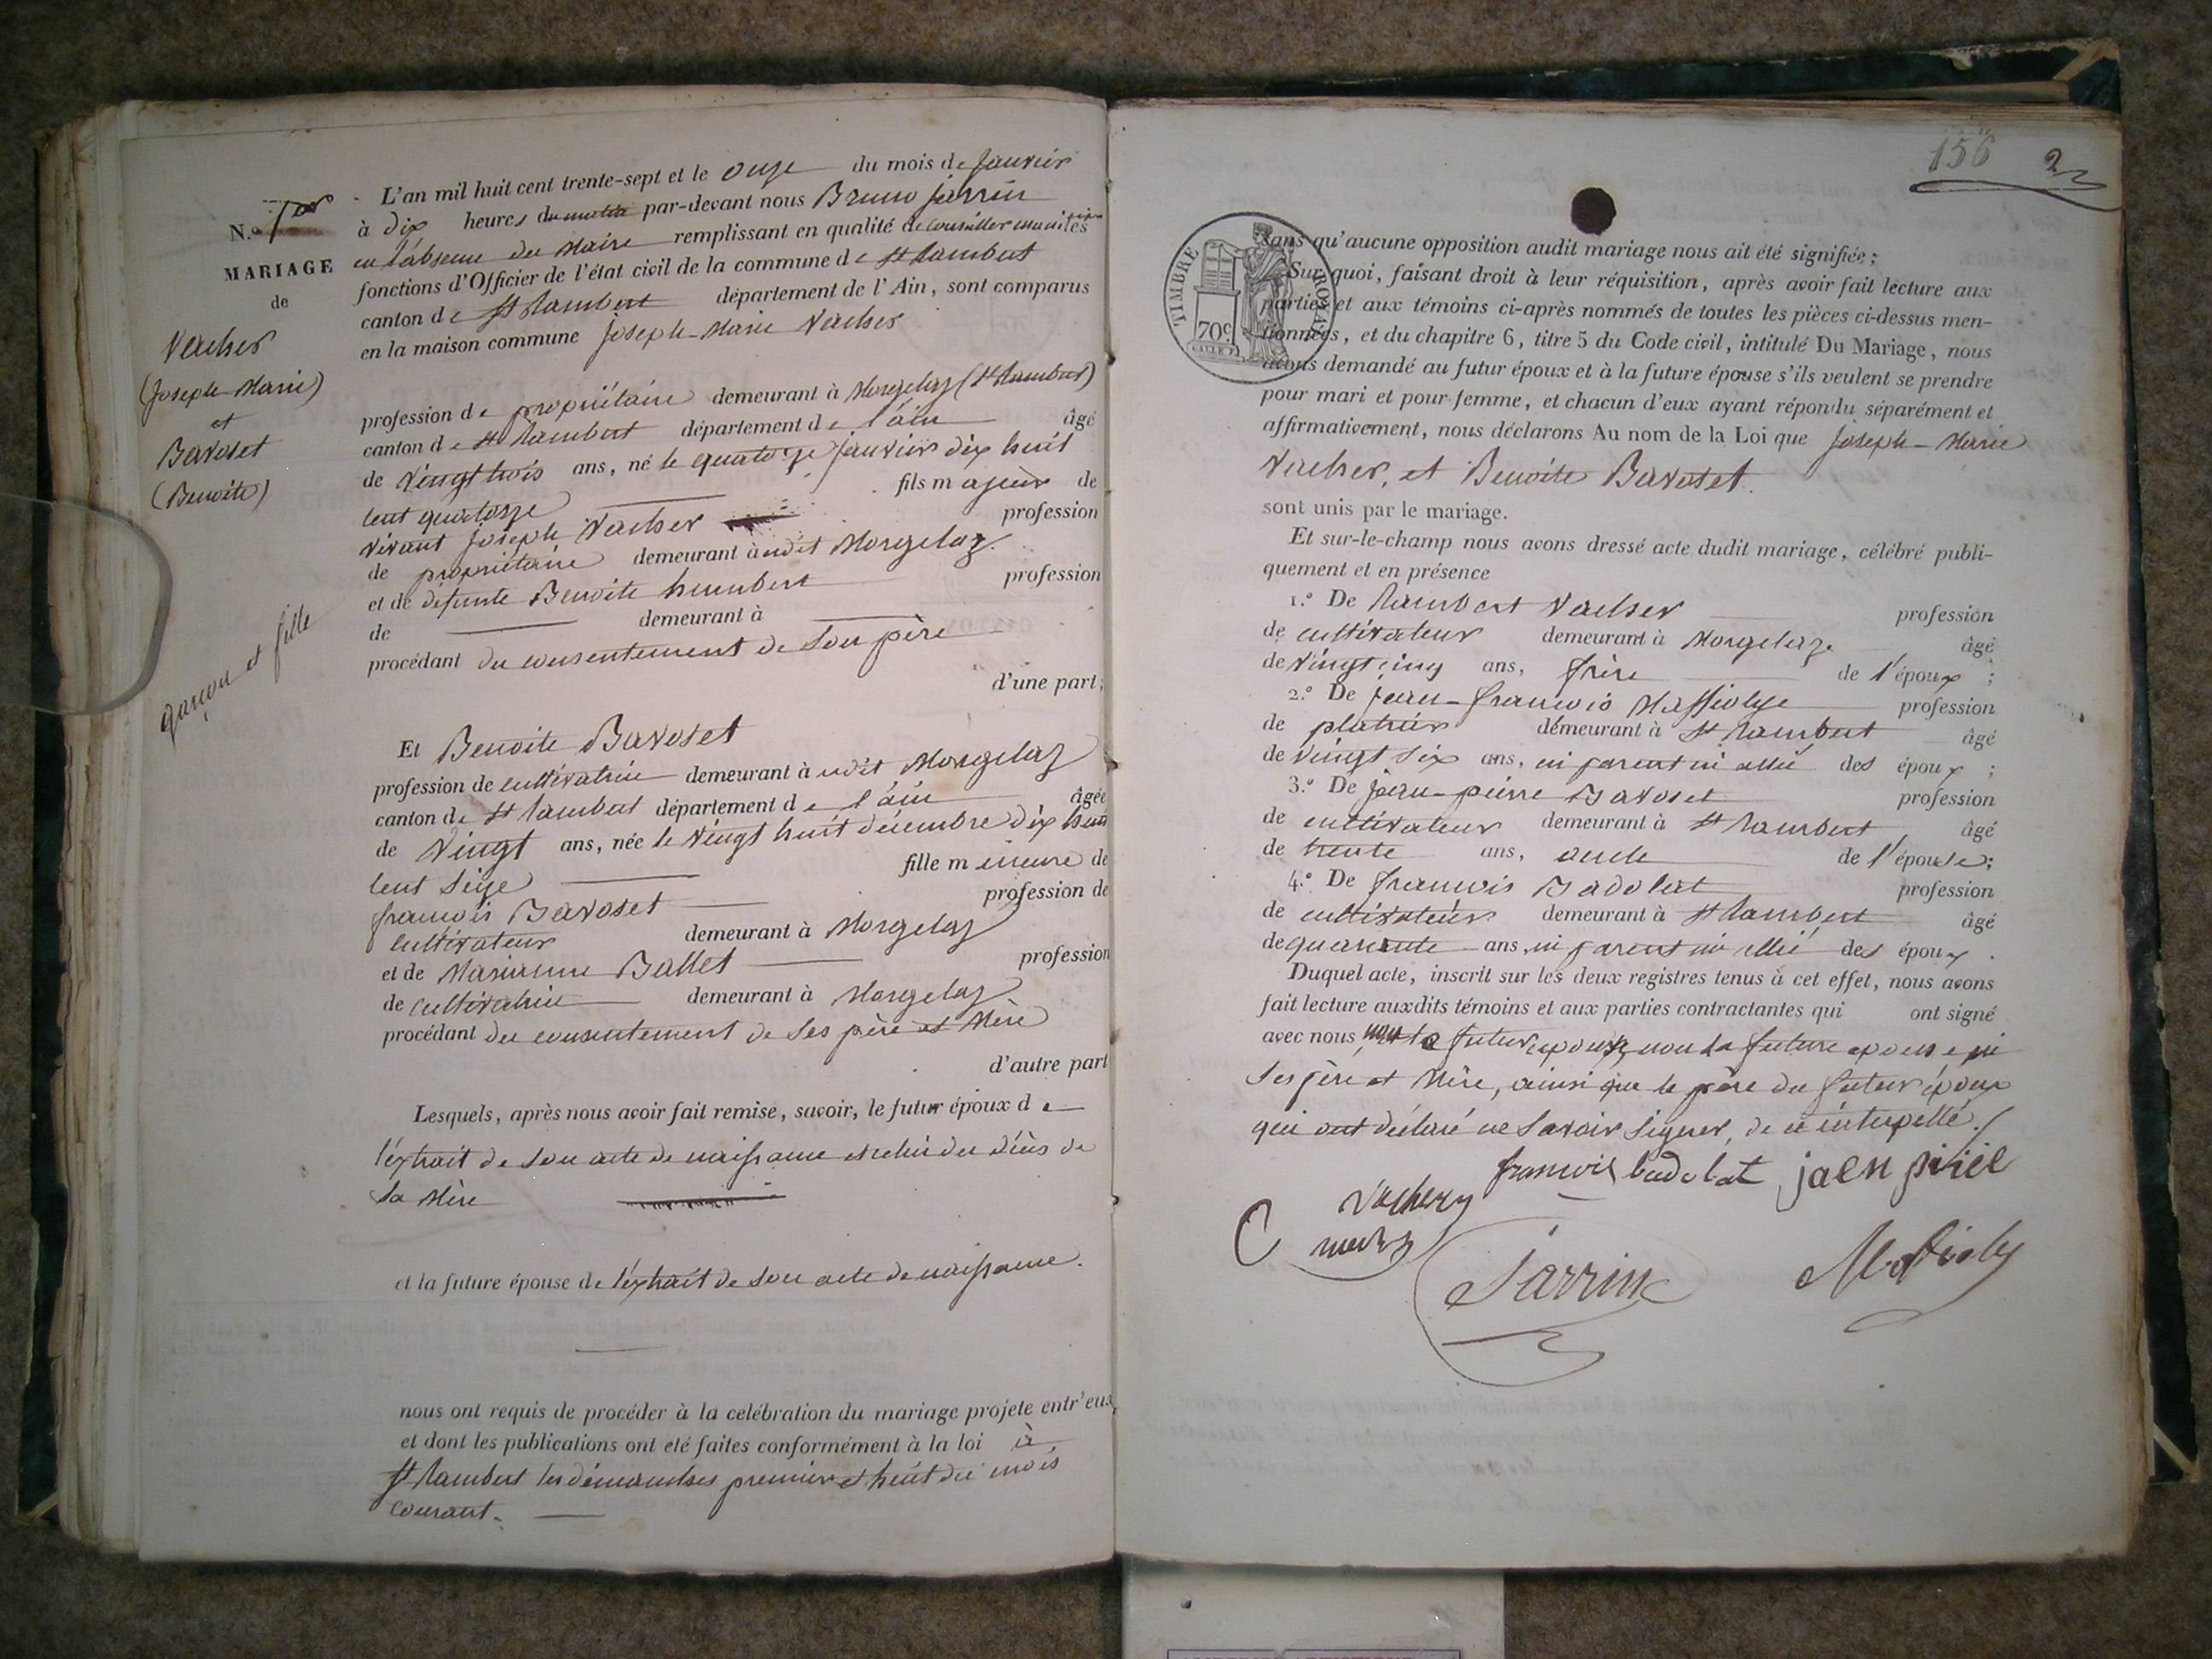 N.o 1er
MARIAGE
de
Vacher
(Joseph Marie)
et
Bavoset
(Benoite)
garçon et fille
L'an mil huit cent trente-sept et le onze du mois de janvier
à dix heures du matin par-devant nous Bruno Jarrin
en l'absence du Maire remplissant en qualité de conseiller municipal les
fonctions d'Officier de l'état civil de la commune de St Rambert
canton de St Rambert département de l'Ain, sont comparus
en la maison commune Joseph-Marie Vacher
profession de propriétaire demeurant à Morgelaz (St Rambert)
canton de St Rambert département de l'ain âgé
de vingt trois ans, né le quatorze janvier dix huit
cent quatorze fils majeur de
vivant Joseph Vacher profession
de propriétaire demeurant à udit Morgelaz.
et de défunte Benoite humbert profession
de demeurant à
procédant du consentement de son père
d'une part;
Et Benoite Bavoset
profession de cultivatrice demeurant à udit Morgelaz
canton de St Rambert département de l'ain âgée
de vingt ans, née le vingt huit décembre dix huit
cent seize fille mineure de
françois Bavoset profession de
cultivateur demeurant à Morgelaz
et de Marianne Ballet profession
de cultivatrice demeurant à Morgelaz
procédant du consentement de ses père et Mère
d'autre part
Lesquels, après nous avoir fait remise, savoir, le futur époux de
l'extrait de son acte de naissance et celui du décès de
sa Mère
et la future épouse de l'extrait de son acte de naissance.
nous ont requis de procéder à la celébration du mariage projete entr'eux,
et dont les publications ont eté faites conformément à la loi à
St Rambert les dimanches premier et huit du mois
courant.
156 2
TIMBRE ROYAL
70c
sans qu'aucune opposition audit mariage nous ait été signifiée;
Sur quoi, faisant droit à leur réquisition, après avoir fait lecture aux
parties et aux témoins ci-après nommés de toutes les pièces ci-dessus men-
tionnées, et du chapitre 6, titre 5 du Code civil, intitulé Du Mariage, nous
avons demandé au futur époux et à la future épouse s'ils veulent se prendre
pour mari et pour femme, et chacun d'eux ayant répondu séparément et
affirmativement, nous déclarons Au nom de la Loi que Joseph-Marie
Vacher, et Benoite Bavoset.
sont unis par le mariage.
Et sur-le-champ nous avons dressé acte dudit mariage, célébré publi-
quement et en présence
1.o De Rambert Vacher profession
de cultivateur demeurant à Morgelaz. âgé
de vingt cinq ans, frère de l'époux;
2.o De jean-françois Massiolye profession
de platrier demeurant à St Rambert âgé
de vingt six ans, ni parent ni allié des époux;
3.o De jean-pierre Bavoset profession
de cultivateur demeurant à St Rambert âgé
de trente ans, oncle de l'épouse;
4.o De françois Badolat profession
de cultivateur demeurant à St Rambert âgé
de quarante ans, ni parent ni allié des époux.
Duquel acte, inscrit sur les deux registres tenus à cet effet, nous avons
fait lecture auxdits témoins et aux parties contractantes qui ont signé
avec nous le futur époux, non la future epouse ni
ses père et Mère, ainsi que le père du futur époux
qui ont déclaré ne savoir signer, de ce interpellé.
francois badolat
Jarrin